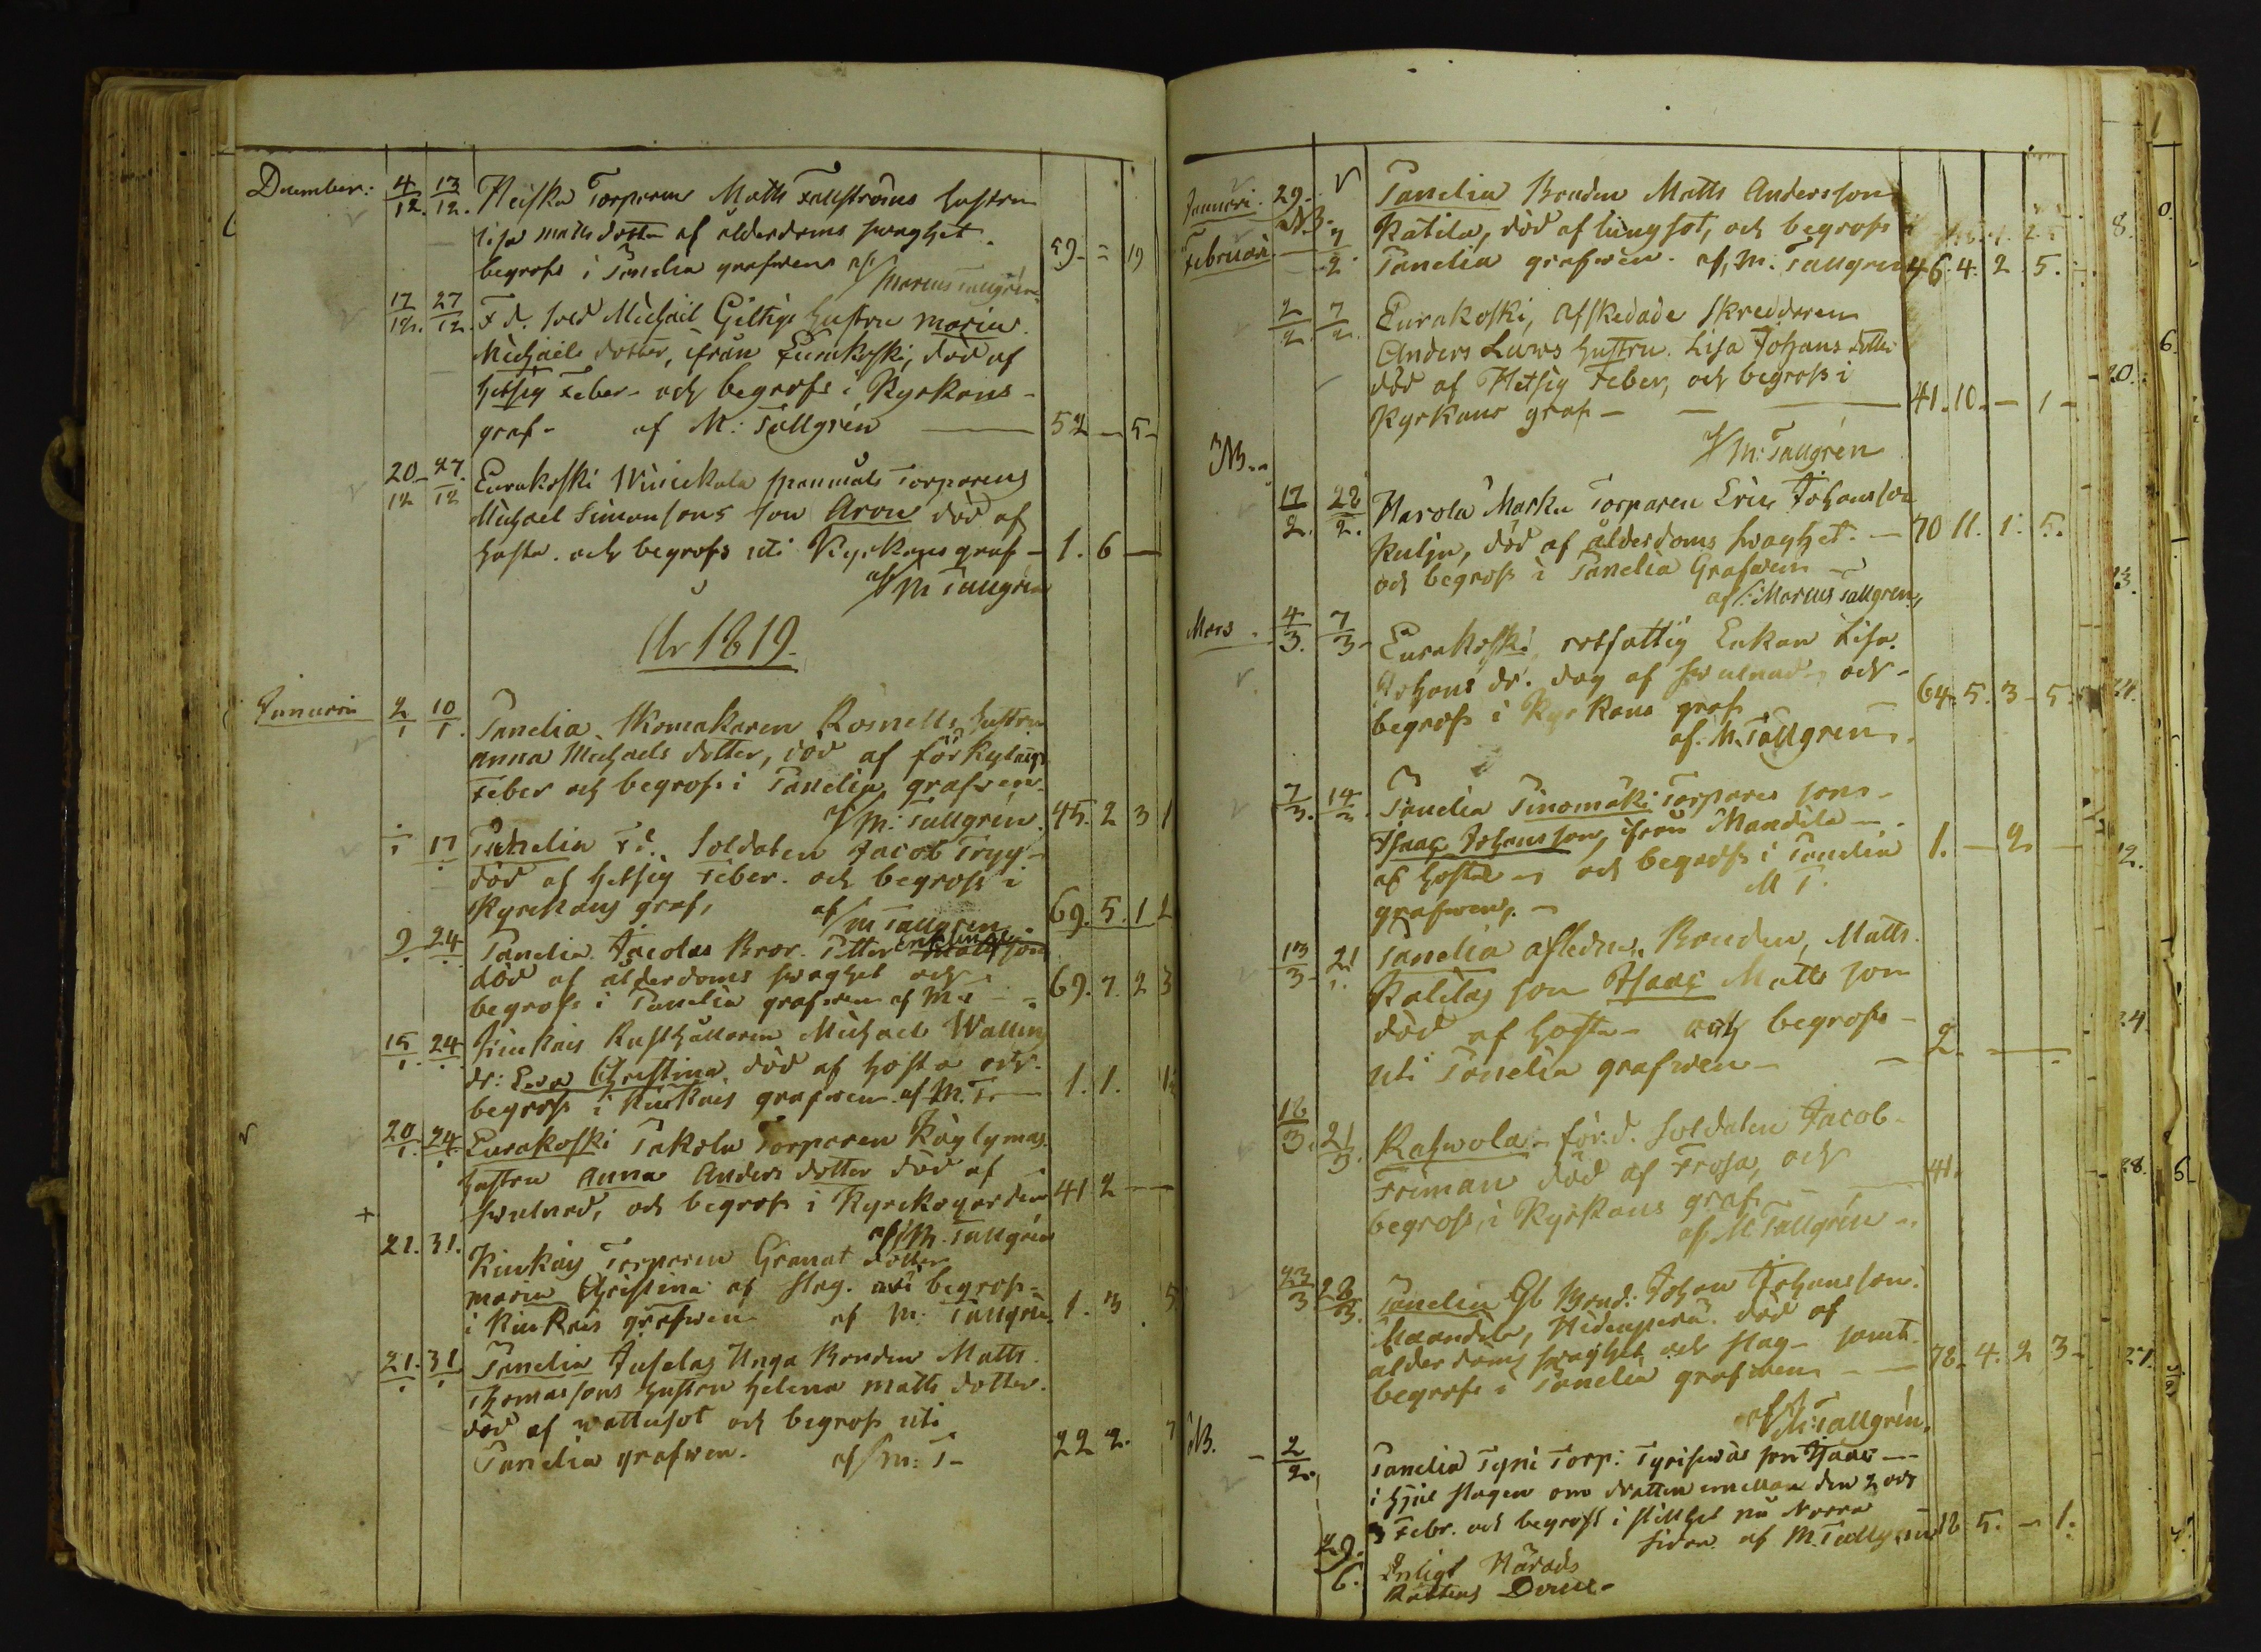 December: 4/12. 13/12. Heiska Torparen Matts Fallströms hustru
Lisa matts dotter af ålderdoms swaghet.
begrofs i Tanelia grafwen af 59 - = 19
Marcus Tallgrén
17/12. 27/12. F d. Sold Michaël Giltigs hustru Maria
Michaels dotter, ifrån Eurakoski, död af
hetsig Feber - och begrofs i Kyrkans -
graf - af M: Tallgrén 52 - 5 -
20/12 27/12 Eurakoski Torparens
Michael Simonsons son Aron död af
hosta. och begrofs uti Kyrkans graf - 1. 6 -
af M Tallgrén
År 1819.
Januarii 2/1 10/1. Tanelia Skomakaren Rosnells hustru
Anna Michaels dotter, död af förkylnings
Feber och begrofs i Tanelia grafwen.
M: Tallgrén. 45. 2 3 1
17 Tanelia F d. Soldaten Jacob Trygg -
död af hetsig Feber. och begrofs i
Kyrckans graf, af M Tallgren 69. 5. 1
9 24 Tanelia Jacolas Bror. Petter
död af ålderdoms swaghet och
begrofs i Tanelia grafwen af M: 69. 7. 2 3
15/1. 24 Kiukais Rusthållaren Michael Wallens
dr: Eva Christina död af hosta och
begrofs i Kiukais grafwen. af M. T. 1. 1.
20/1. 24 Eurakoski Torparen
hustru Anna Anders dotter död af
swulnad, och begrofs i Kyrckogården 41 2 - -
af M. Tallgrén
21. 31. Kiukais Torparen Granat dotter
Maria Christina af slag. och begrofs =
i Kiukais grafwen af M: Tallgrén. 1. 3 5
21. 31 Tanelia Juselas Unga Bonden Matts
Thomassons hustru Helena matts dotter.
död af wattusot och begrofs uti
Tanelia grafwen. af M: T - 22 2. 7
Januari. 29. Tanelia Bonden Matts Andersson
NB. Katila, död af lungsot, och begrofs i
Februari 7/2 Tanelia grafwen. af, M: Tallgren 46. 4. 2. 5.
2/2. 7/2. Eurakoski, afskedade Skreddaren
Anders Laurs hustru. Lisa Johans dotter
död af Hetsig Feber, och begrofs i
Kyrkans graf - 41. 10. - 1 -
M: Tallgrén
NB.
17/2. 28/2. Harola Marku Torparen Eric Johansson
Kulju, död af ålderdoms swaghet. - 70 11. 1. 5.
och begrofs i Tanelia Grafwen
af: Marcus Tallgren,
Mars. 4/3. 7/3 - Eurakoski, rotfattig Enkan Lisa
Johans dr. dog af swulnad och -
begrofs i Kyrkans graf 64. 5. 3 - 5
af. M. Tallgren.
7/3. 14/3. Tanelia Sinomäki Torpares son -
Isaac Johansson, ifrån Mandila -
af hosta - och begrofs i Tanelia 1. - 2 -
grafwen. - M T.
13/3 - 21 Tanelia afledne Bonden, Matts
Katilas son Isaac Matts son
död af hosta - och begrofs -
uti Tanelia grafwen - 2. -
18/3. 21/3. Kahwola - för.d. Soldaten Jacob -
Friman död af Frosa, och
begrofs, i Kyrkans graf. 41.
af M Tallgrén -
23/3 28/3. Tanelia Gl Bond: Johan Johansson.
död af
ålderdoms swaghet och slag - samt
begrofs i Tanelia grafwen - 78 - 4. 2 3 -
af M: Tallgrén.
NB. - 2/2. Tanelia Torp: son Isaac -
i hjel slagen om natten emellan den 2 och
3 Febr. och begrofs i stillhet på Norra
sidan af M. Tallgren 18 5. - 1.
29/6. Enligt Härads
Rättens Dom -